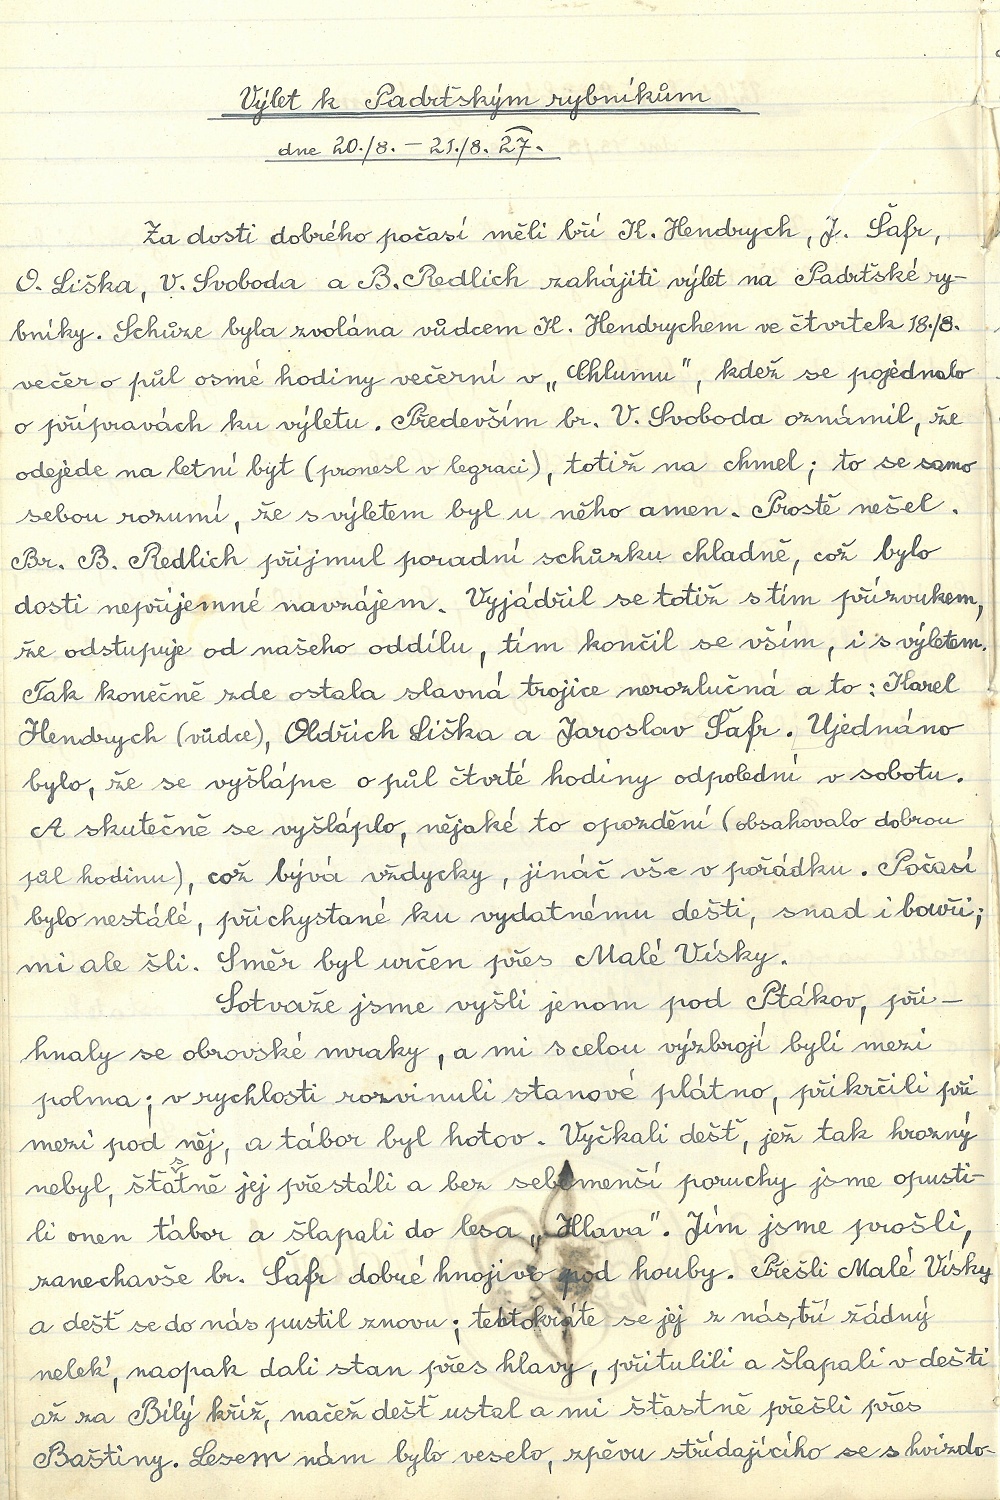 Výlet k Padrťským rybníkům
dne 20./8. – 21./8. 27.
Za dosti dobrého počasí měli bří K. Hendrych, J. Šafr,
O. Liška, V. Svoboda a B. Redlich zahájiti výlet na Padrťské ry-
bníky. Schůze byla zvolána vůdcem K. Hendrychem ve čtvrtek 18./8.
večer o půl osmé hodiny večerní v „Chlumu", kdež se pojednalo
o přípravách ku výletu. Především br. V. Svoboda oznámil, že
odejede na letní byt (pronesl v legraci), totiž na chmel; to se samo
sebou rozumí, že s výletem byl u něho amen. Prostě nešel.
Br. B. Redlich přijmul poradní schůzku chladně, což bylo
dosti nepříjemné navzájem. Vyjádřil se totiž s tím přízvukem,
že odstupuje od našeho oddílu, tím končil se vším, i s výletem.
Tak konečně zde ostala slavná trojice nerozlučná a to: Karel
Hendrych (vůdce), Oldřich Liška a Jaroslav Šafr. Ujednáno
bylo, že se vyšlápne o půl čtvrté hodiny odpolední v sobotu.
A skutečně se vyšláplo, nějaké to opozdění (obsahovalo dobrou
půl hodinu), což bývá vždycky, jináč vše v pořádku. Počasí
bylo nestálé, přichystané ku vydatnému dešti, snad i bouři;
mi ale šli. Směr byl určen přes Malé Vísky.
Sotvaže jsme vyšli jenom pod Ptákov, při-
hnaly se obrovské mraky, a mi s celou výzbrojí byli mezi
polma; v rychlosti rozvinuli stanové plátno, přikrčili při
mezi pod něj, a tábor byl hotov. Vyčkali dešť, jež tak hrozný
nebyl, šťastně jej přestáli a bez sebemenší poruchy jsme opusti-
li onen tábor a šlapali do lesa „Hlava". Jím jsme prošli,
zanechavše br. Šafr dobré hnojivo pod houby. Přešli Malé Vísky
a dešť se do nás pustil znovu; tentokráte se jej z nás tří žádný
nelek', naopak dali stan přes hlavy, přitulili a šlapali v dešti
až za Bílý kříž, načež dešť ustal a mi šťastně přešli přes
Baštiny. Lesem nám bylo veselo, zpěvu střídajícího se s hvízdo-